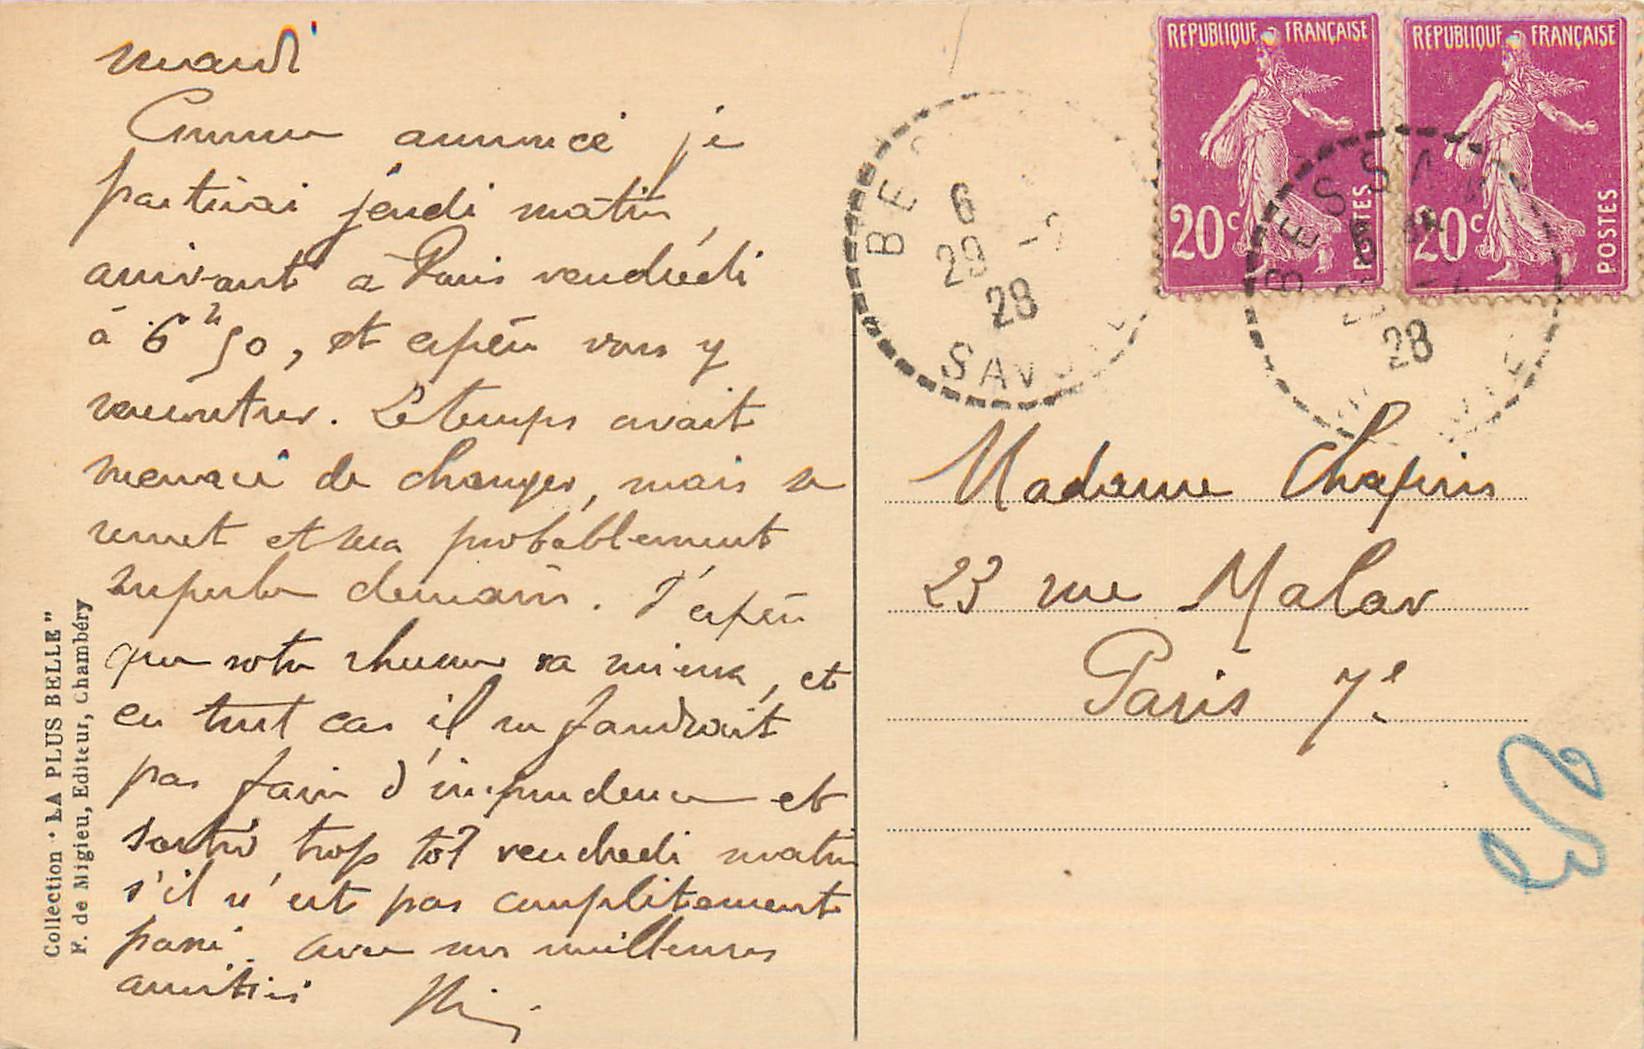 mardi
Comme annoncé je
partirai jeudi matin,
arrivant à Paris vendredi
à 6h50, et espère vous y
rencontrer. Le temps avait
menacé de changer, mais se
remet et sera probablement
superbe demain. J'espère
que votre rhume va mieux, et
en tout cas il ne faudrait
pas faire d'imprudence et
sortir trop tôt vendredi matin
s'il n'est pas complètement
passé. Avec mes meilleures
amitiés
Collection • LA PLUS BELLE"
F. de Migieu, Editeur, Chambéry
REPUBLIQUE FRANÇAISE
20c POSTES
REPUBLIQUE FRANÇAISE
20c POSTES
6
29
28
SAVOIE
BESSA
28
Madame Chapin
23 rue Malar
Paris 7e